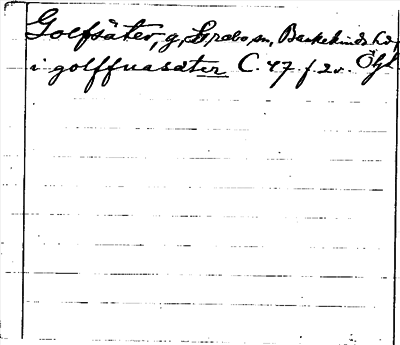 Golfsäter, g, Grebo sn, Bankekinds hd,
i golffuasæter C 47 f. 2v. Ögl.